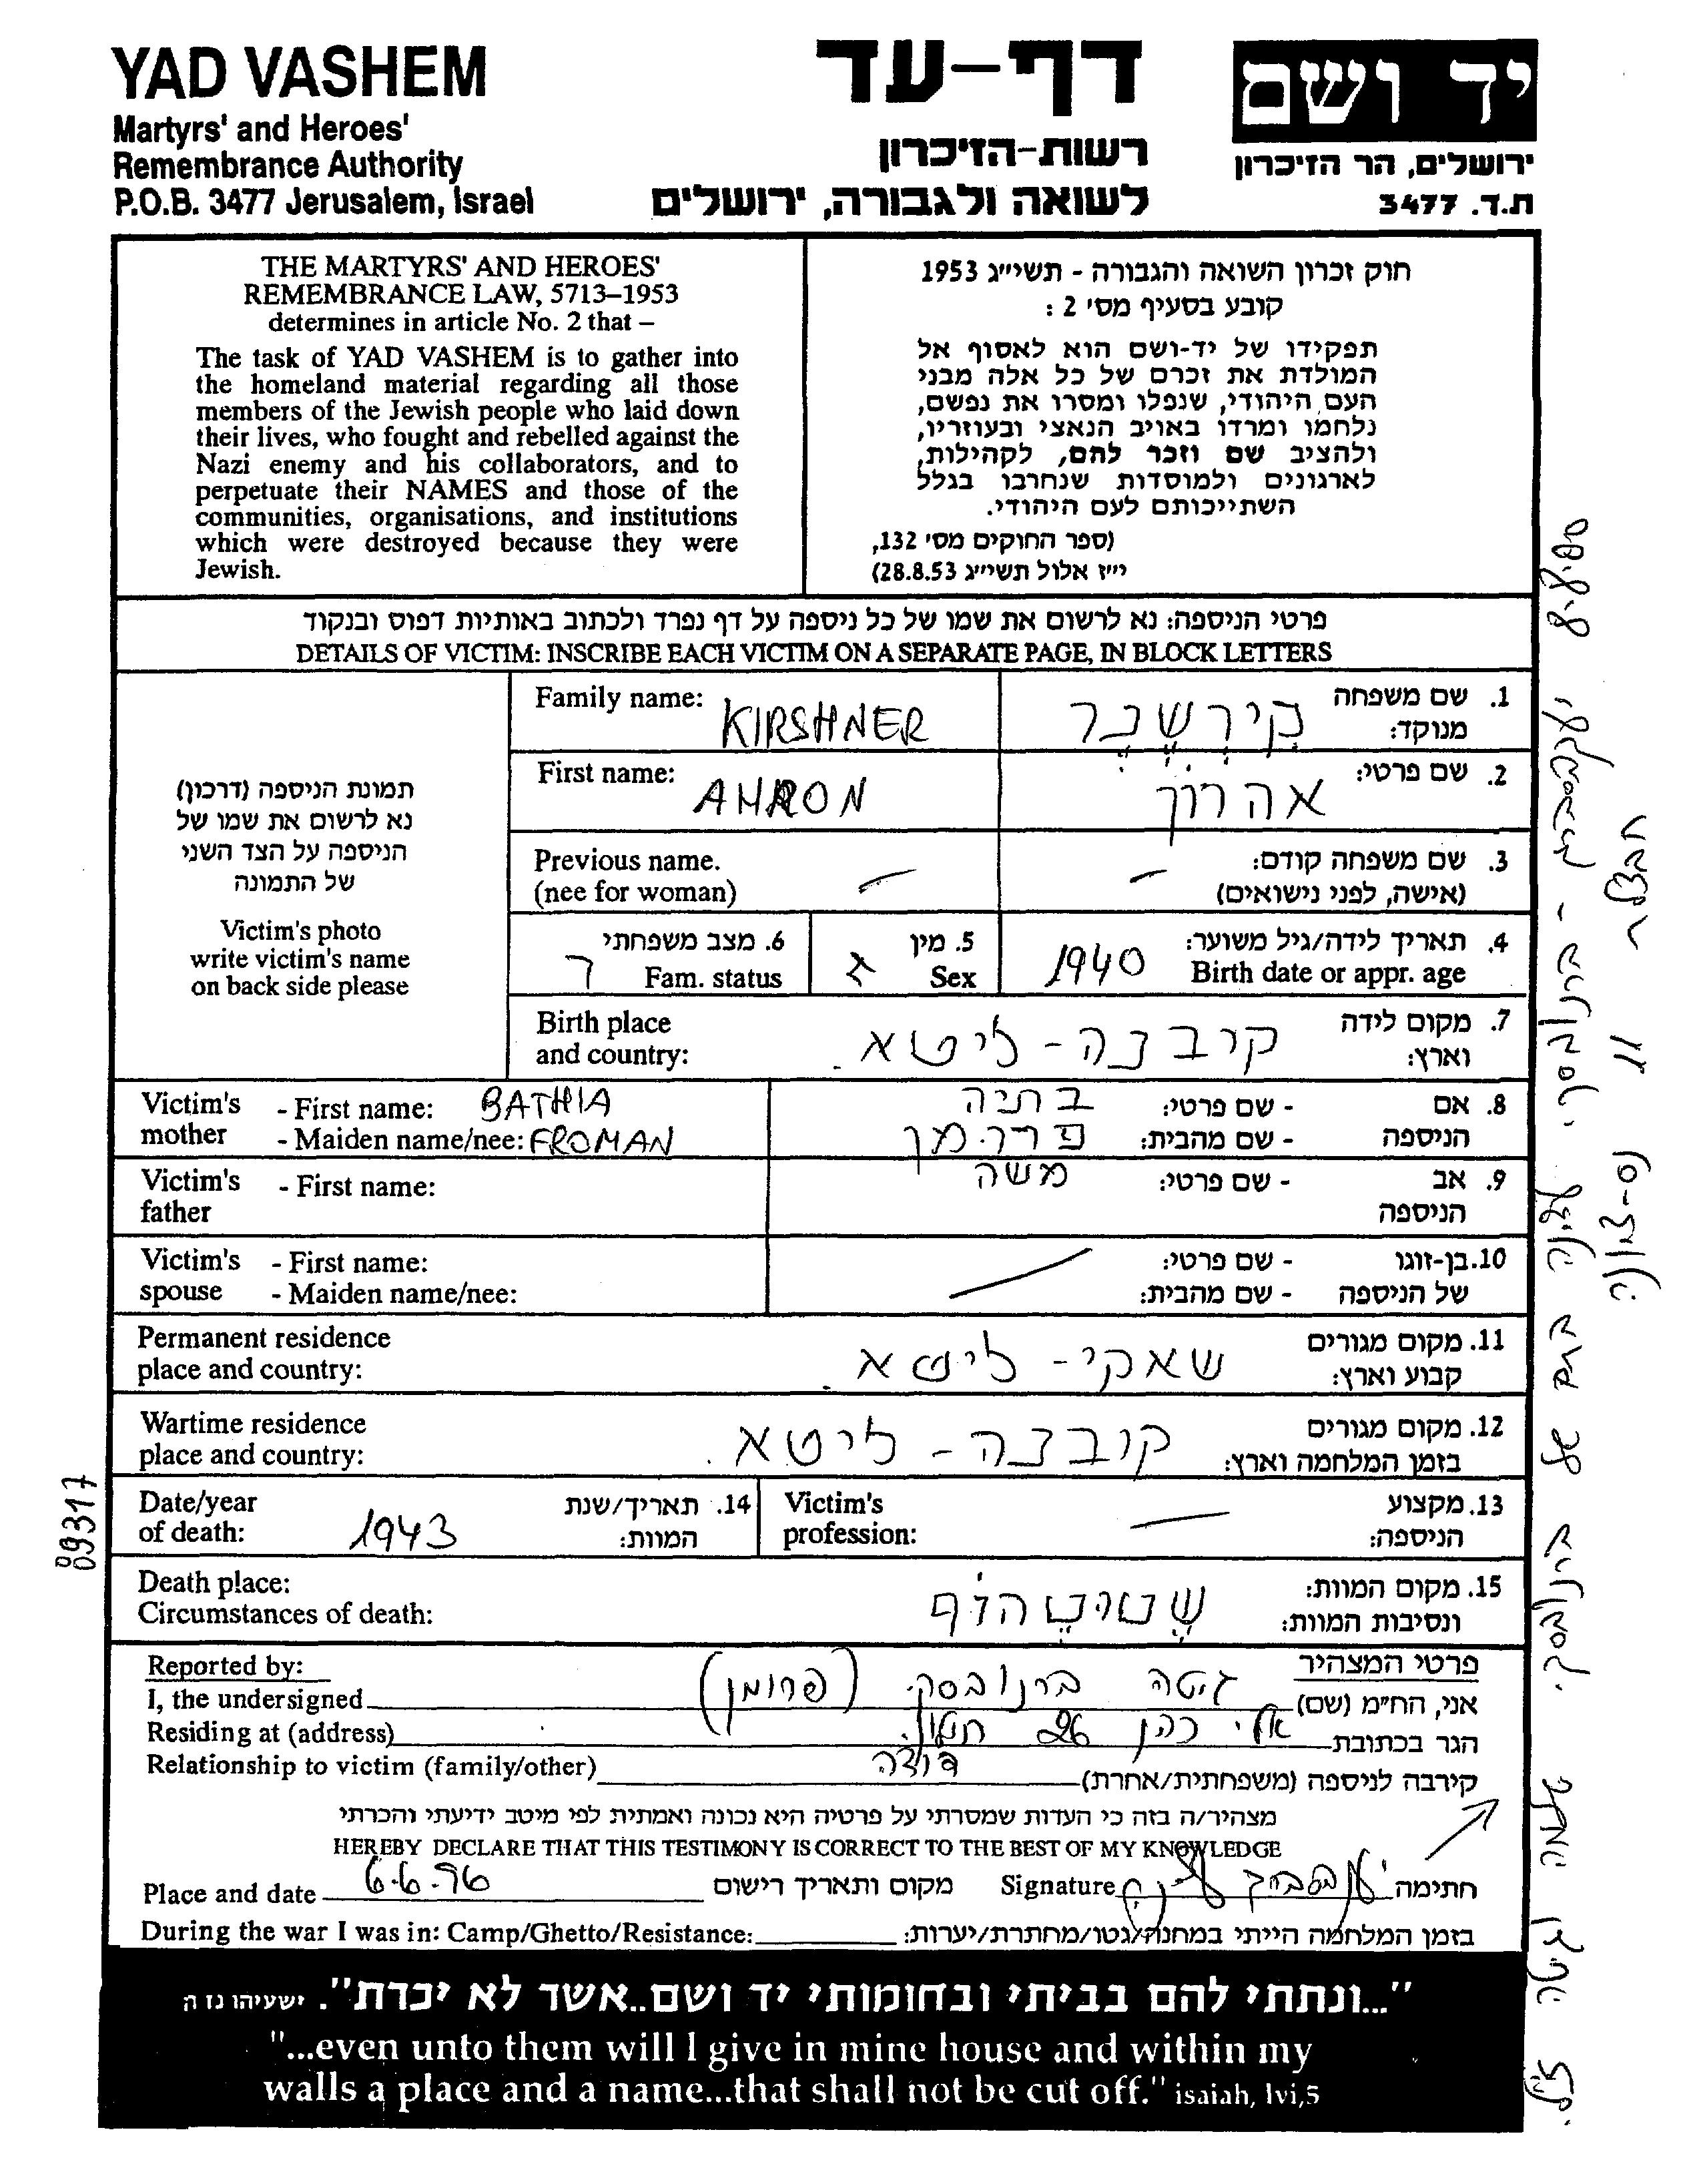 YAD VASHEM
Martyrs' and Heroes'
Remembrance Authority
P.O.B. 3477 Jerusalem, Israel
דף-עד
רשות-הזיכרון
לשואה ולגבורה, ירושלים
יד ושם
ירושלים, הר הזיכרון
ת.ד. 3477
THE MARTYRS' AND HEROES'
REMEMBRANCE LAW, 5713–1953
determines in article No. 2 that –
The task of YAD VASHEM is to gather into
the homeland material regarding all those
members of the Jewish people who laid down
their lives, who fought and rebelled against the
Nazi enemy and his collaborators, and to
perpetuate their NAMES and those of the
communities, organisations, and institutions
which were destroyed because they were
Jewish.
חוק זכרון השואה והגבורה - תשי״ג 1953
קובע בסעיף מס׳ 2 :
תפקידו של יד-ושם הוא לאסוף אל
המולדת את זכרם של כל אלה מבני
העם היהודי, שנפלו ומסרו את נפשם,
נלחמו ומרדו באויב הנאצי ובעוזריו,
ולהציב שם וזכר להם, לקהילות,
לארגונים ולמוסדות שנחרבו בגלל
השתייכותם לעם היהודי.
(ספר החוקים מס׳ 132,
י״ז אלול תשי״ג 28.8.53)
פרטי הניספה: נא לרשום את שמו של כל ניספה על דף נפרד ולכתוב באותיות דפוס ובנקוד
DETAILS OF VICTIM: INSCRIBE EACH VICTIM ON A SEPARATE PAGE, IN BLOCK LETTERS
תמונת הניספה (דרכון)
נא לרשום את שמו של
הניספה על הצד השני
של התמונה
Victim's photo
write victim's name
on back side please
Family name: KIRSHNER קִירְשְׁנֶר 1. שם משפחה
מנוקד:
First name: AHRON אהרון 2. שם פרטי:
Previous name. — — 3. שם משפחה קודם:
(nee for woman) (אישה, לפני נישואים)
6. מצב משפחתי ר 5. מין ז 1940 4. תאריך לידה/גיל משוער:
Fam. status Sex Birth date or appr. age
Birth place קובנה - ליטא. 7. מקום לידה
and country: וארץ:
Victim's - First name: BATHIA בתיה - שם פרטי: 8. אם
mother - Maiden name/nee: FROMAN פרומן - שם מהבית: הניספה
Victim's - First name: משה - שם פרטי: 9. אב
father הניספה
Victim's - First name: - שם פרטי: 10. בן-זוגו
spouse - Maiden name/nee: - שם מהבית: של הניספה
Permanent residence שאקי - ליטא. 11. מקום מגורים
place and country: קבוע וארץ:
Wartime residence קובנה - ליטא. 12. מקום מגורים
place and country: בזמן המלחמה וארץ:
Date/year 1943 14. תאריך/שנת Victim's — 13. מקצוע
of death: המוות: profession: הניספה:
Death place: שטוטהוף 15. מקום המוות:
Circumstances of death: ונסיבות המוות:
Reported by: פרטי המצהיר
I, the undersigned גיטה ברנובסקי (פרומן) אני, הח״מ (שם)
Residing at (address) אלי כהן 26 חולון הגר בכתובת
Relationship to victim (family/other) דודה קירבה לניספה (משפחתית/אחרת)
מצהיר/ה בזה כי העדות שמסרתי על פרטיה היא נכונה ואמתית לפי מיטב ידיעתי והכרתי
HEREBY DECLARE THAT THIS TESTIMONY IS CORRECT TO THE BEST OF MY KNOWLEDGE
Place and date 6.6.96 מקום ותאריך רישום Signature חתימה
During the war I was in: Camp/Ghetto/Resistance: בזמן המלחמה הייתי במחנה/גטו/מחתרת/יערות:
"...ונתתי להם בביתי ובחומותי יד ושם..אשר לא יכרת". ישעיהו נו ה
"...even unto them will I give in mine house and within my
walls a place and a name...that shall not be cut off." isaiah, lvi,5
09317